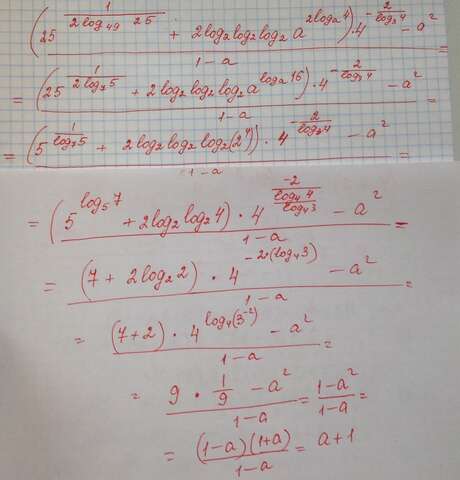 (25^(1/(2log₄₉ 25)) + 2log₂log₂log₂ a^(2log_a 4)) · 4^(-2/(log₃ 4)) - a² / 1-a =
= (25^(1/(2log₇5)) + 2log₂log₂log₂ a^(log_a 16)) · 4^(-2/(log₃ 4)) - a² / 1-a =
= (5^(1/(log₇5)) + 2log₂log₂log₂(2⁴)) · 4^(-2/(log₃4)) - a² / 1-a =
= (5^(log₅7) + 2log₂log₂4) · 4^(-2/(log₄4/log₄3)) - a² / 1-a =
= (7 + 2log₂2) · 4^(-2·(log₄3)) - a² / 1-a =
= (7+2) · 4^(log₄(3⁻²)) - a² / 1-a =
= 9 · 1/9 - a² / 1-a = 1-a² / 1-a =
= (1-a)(1+a) / 1-a = a+1